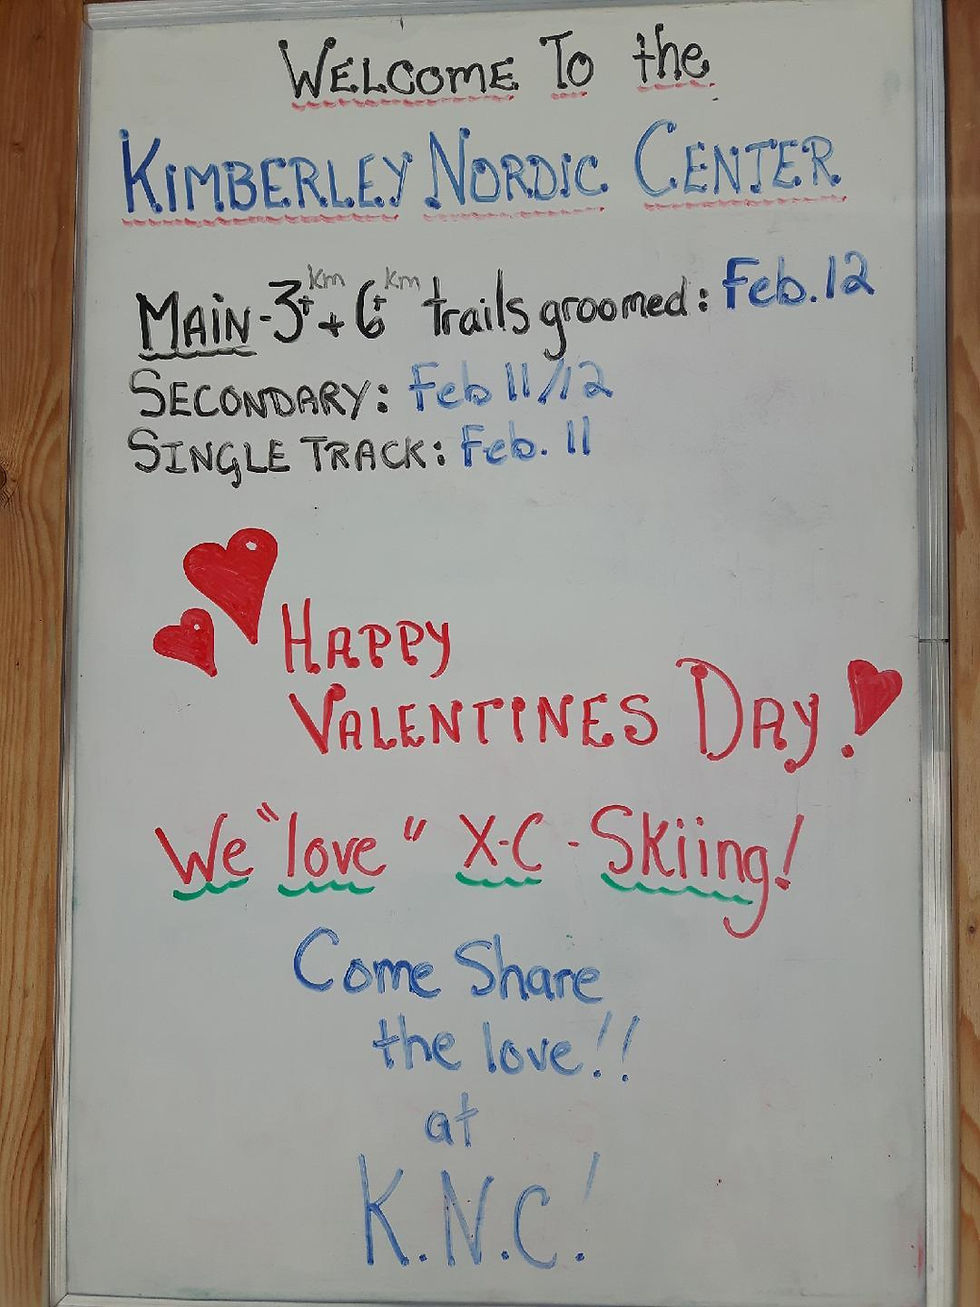 WELCOME To the
KIMBERLEY NORDIC CENTER
MAIN - 3km + 6km trails groomed: Feb. 12
SECONDARY: Feb 11/12
SINGLE TRACK: Feb. 11
HAPPY
VALENTINES DAY!
We "love" X-C - Skiing!
Come Share
the love!!
at
K.N.C.!